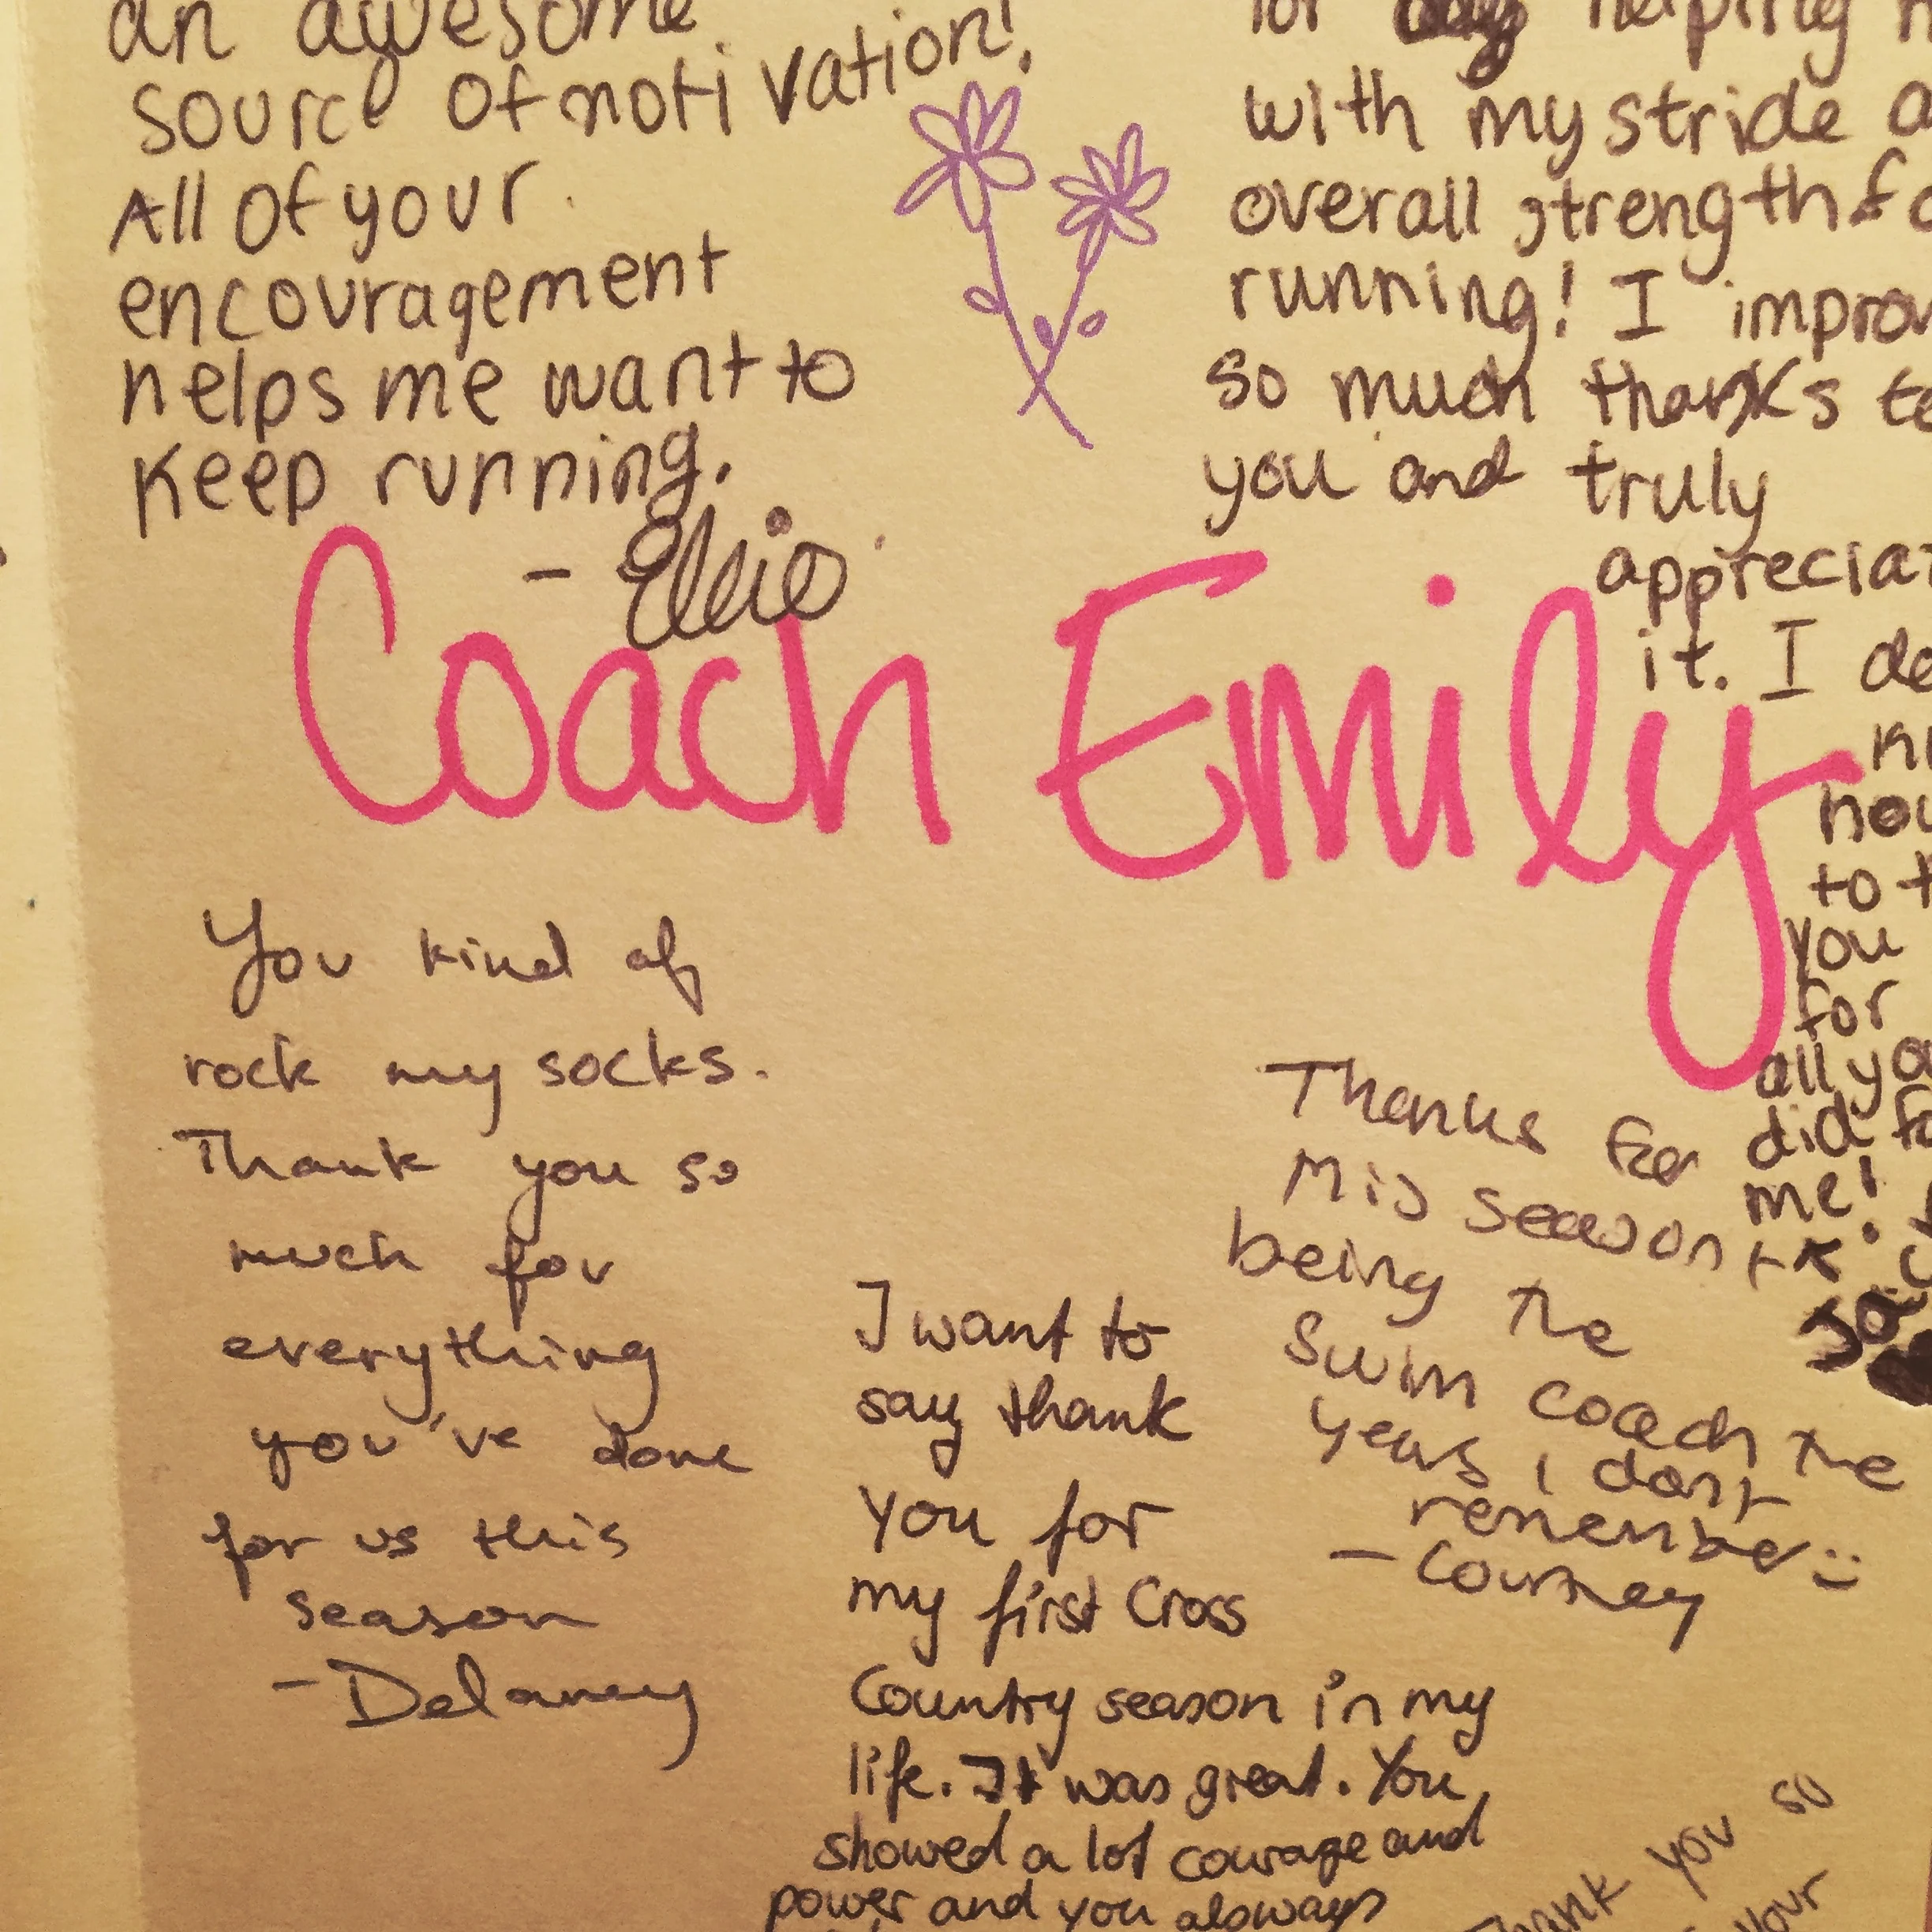 an awesome
source of motivation!
All of your
encouragement
helps me want to
keep running.
- Ellie
for helping
with my stride
overall strength
running! I
so much thanks
you and truly
it. I
to
you
for
all
did
me!
Coach Emily
You kind of
rock my socks.
Thank you so
much for
everything
you've done
for us this
season
- Delaney
I want to
say thank
you for
my first Cross
Country season in my
life. It was great. You
showed a lot courage and
power and you always
Thanks for
Mid season
being the
swim coach the
years i dont
remember :)
- Courtney
Thank you so
your